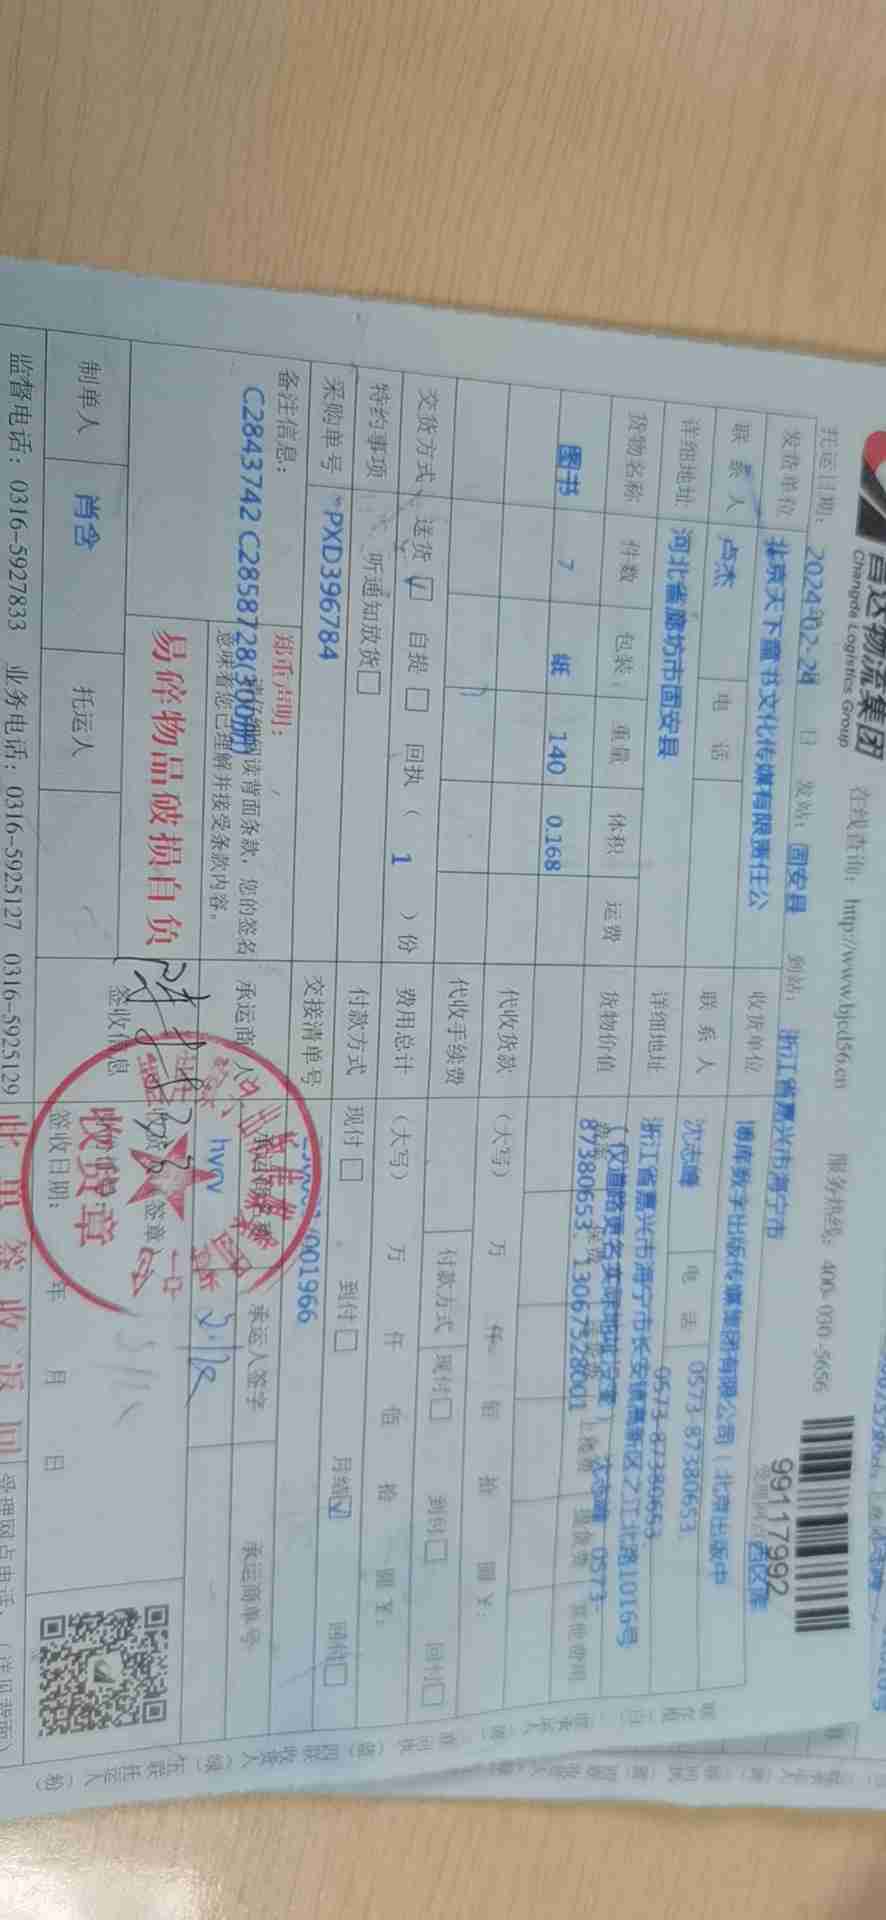 昌达物流集团
Changda Logistics Group
在线查询: http://www.bjcd56.cn 服务热线: 400-030-5656
99117992
托运日期: 2024 02-28 日 发站: 固安县 到站: 浙江省嘉兴市海宁市 西区库
发货单位 北京天下童书文化传媒有限责任公 收货单位 博库数字出版传媒集团有限公司(北京出版中
联系人 卢杰 电话 联系人 沈志峰 电话 0573-87380653
0573-87380653
详细地址 河北省廊坊市固安县 详细地址 浙江省嘉兴市海宁市长安镇高新区之江北路1016号
(仅道路更名实际地址没变) 沈志峰 0573-
87380653、13067528001
货物名称 件数 包装 重量 体积 运费 货物价值
图书 7 纸 140 0.168
代收货款 (大写) 万 仟 佰 拾 圆 ¥:
代收手续费 付款方式 现付□ 到付□ 回付□
交货方式 送货☑ 自提□ 回执( 1 )份 费用总计 (大写) 万 仟 佰 拾 圆 ¥:
特约事项 听通知放货□ 付款方式 现付□ 到付□ 月结☑ 回付□
采购单号 *PXD396784 交接清单号 001966
备注信息:
C2843742 C2858728(300册)
郑重声明:
请仔细阅读背面条款, 您的签名
意味着您已理解并接受条款内容。
承运商 承运人签字 承运商单号
hycv
易碎物品破损自负
签收信息
收货章
签收日期: 年 月 日
制单人 肖含 托运人
监督电话: 0316-5927833 业务电话: 0316-5925127 0316-5925129 此单签收返回 受理网点电话: (详见背面)